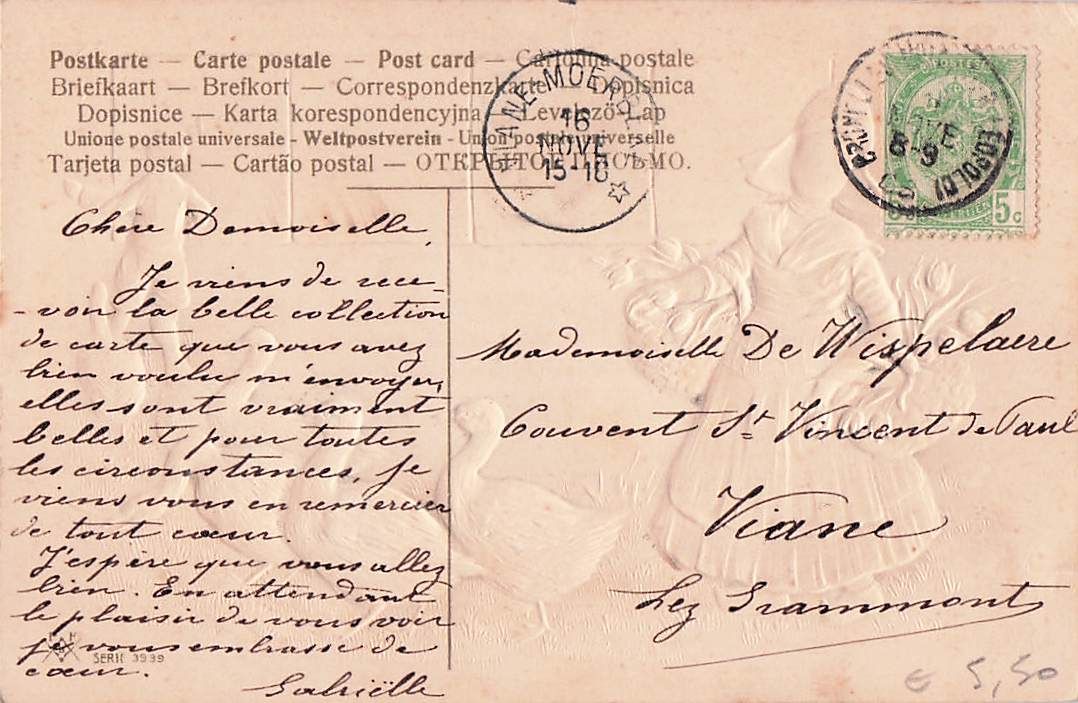 Postkarte — Carte postale — Post card — Cartolina postale
Briefkaart — Brefkort — Correspondenzkarte — Dopisnica
Dopisnice — Karta korespondencyjna — Levelező-Lap
Unione postale universale - Weltpostverein - Union postale universelle
Tarjeta postal — Cartão postal — ОТКРЫТОЕ ПИСЬМО.
VIANE-MOERBEKE
16
NOVE
15-16
LEOPOLD
NOVE
8-9
POSTES
5 c
Chère Demoiselle,
Je viens de rece-
-voir la belle collection
de carte que vous avez
bien voulu m'envoyer,
elles sont vraiment
belles et pour toutes
les circonstances, je
viens vous en remercier
de tout cœur.
J'espère que vous allez
bien. En attendant
le plaisir de vous voir
je vous embrasse de
cœur.
Gabriëlle
SERIE 3939
Mademoiselle De Wispelaere
Couvent St Vincent de Paul
Viane
Lez Grammont
€ 5,50